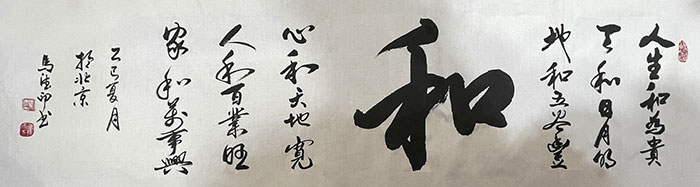 人生和为贵
天和日月明
地和五谷豐
和
心和天地寬
人和百業旺
家和萬事興
乙巳夏月
於北京
馬德印书